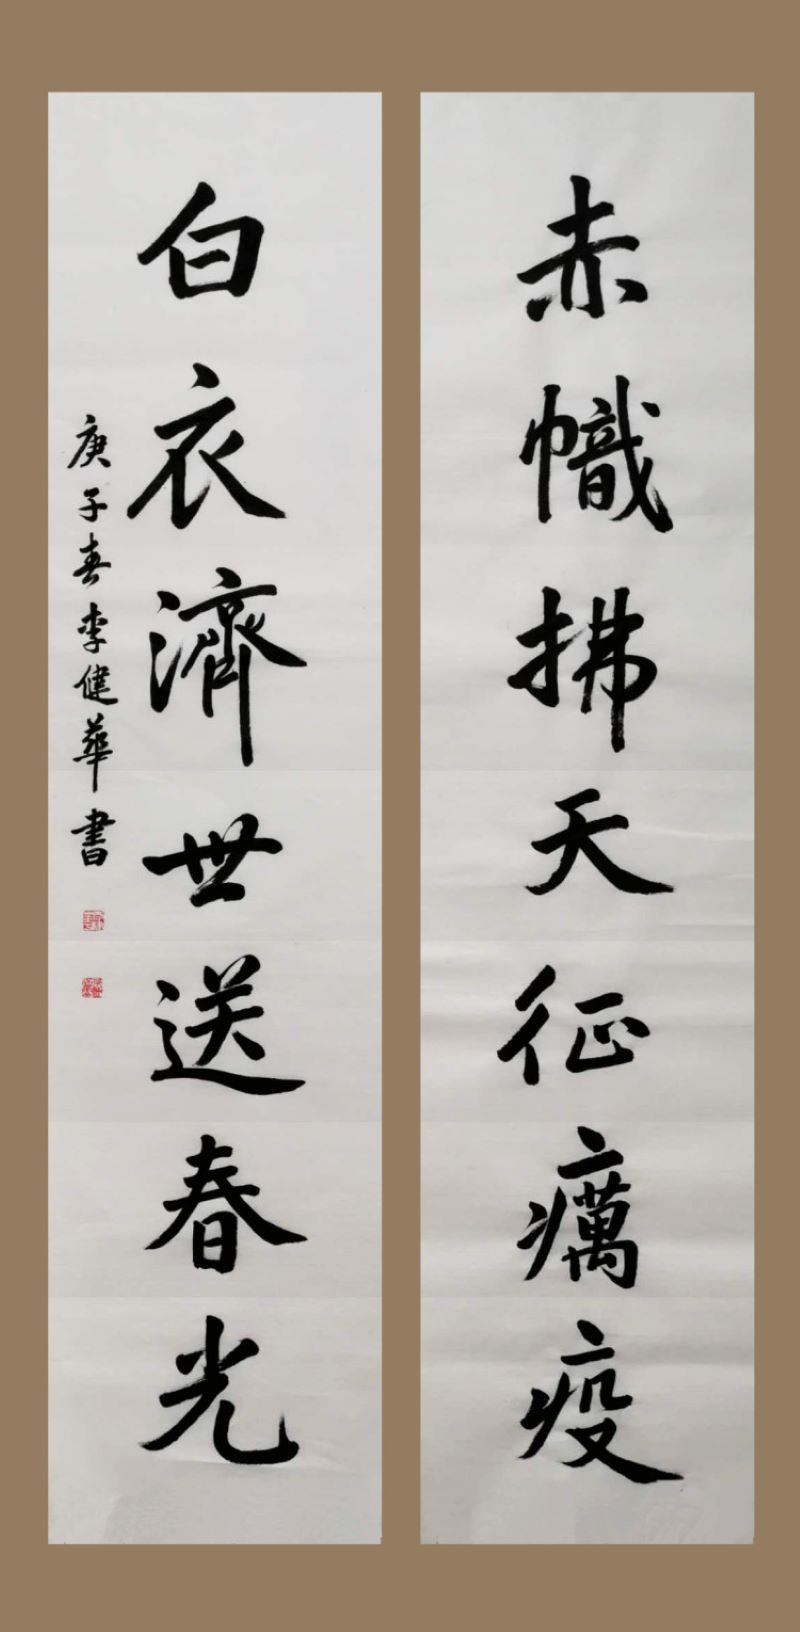 赤幟拂天征癘疫
白衣濟世送春光
庚子春李健華書